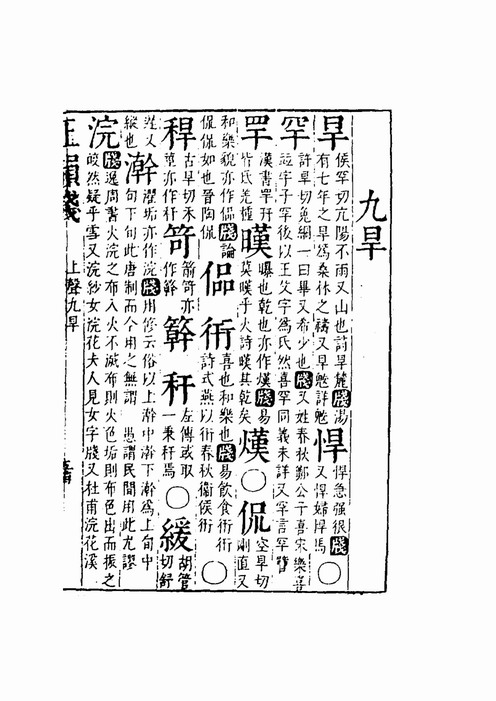 九旱
旱侯罕切亢陽不雨又山也詩旱麓牋湯有七年之旱爲桑林之禱又旱魃詳魃悍悍急强很牋又悍婦悍馬○
罕許旱切兔綱一曰畢又希少也牋又姓春秋鄭公子喜宋樂喜竝字子罕後以王父字爲氏然喜罕同義未詳又罕言罕譬
䍐漢書䍐幵暵曝也乾也亦作熯牋易莫暵乎火詩暵其乾矣熯○侃空旱切剛直又
和樂貌亦作偘牋論侃侃如也晉陶侃偘衎喜也和樂也牋易飲食衎衎詩式燕以衎春秋衞侯衎○
稈古旱切禾莖亦作秆笴箭笴亦作簳簳秆左傳或取一秉秆焉○緩胡管切舒
遲又縱也澣濯垢亦作浣牋用修云俗以上澣中澣下澣爲上旬中旬下旬此唐制而今用之無謂 愚謂民間用此尤謬
浣牋逸周書火浣之布入火不滅布則火色垢則布色出而振之皎然疑乎雪又浣紗女浣花夫人見女字牋又杜甫浣花溪
韻牋 上聲九旱